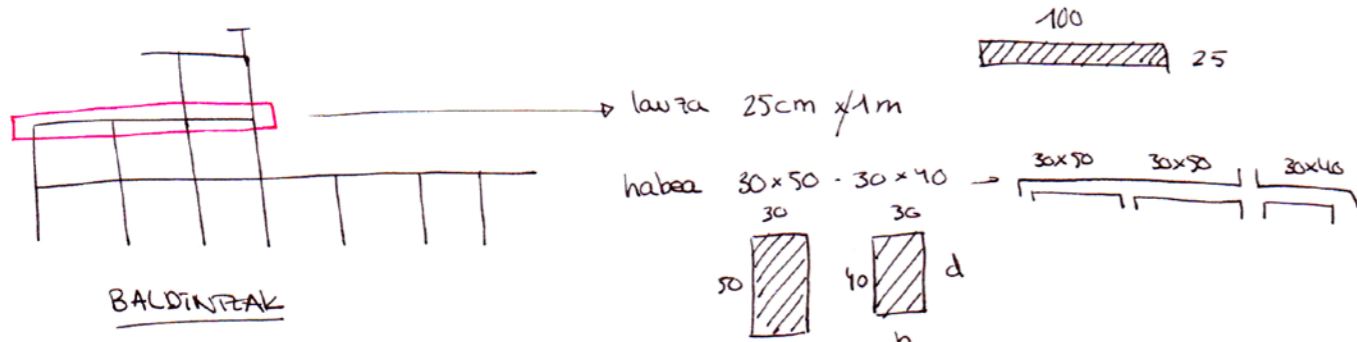 100
25
lauza 25cm x/1m
habea 30x50 - 30x40 →
30x50 30x50 30x40
30 30
50 40 d
b
BALDINTZAK